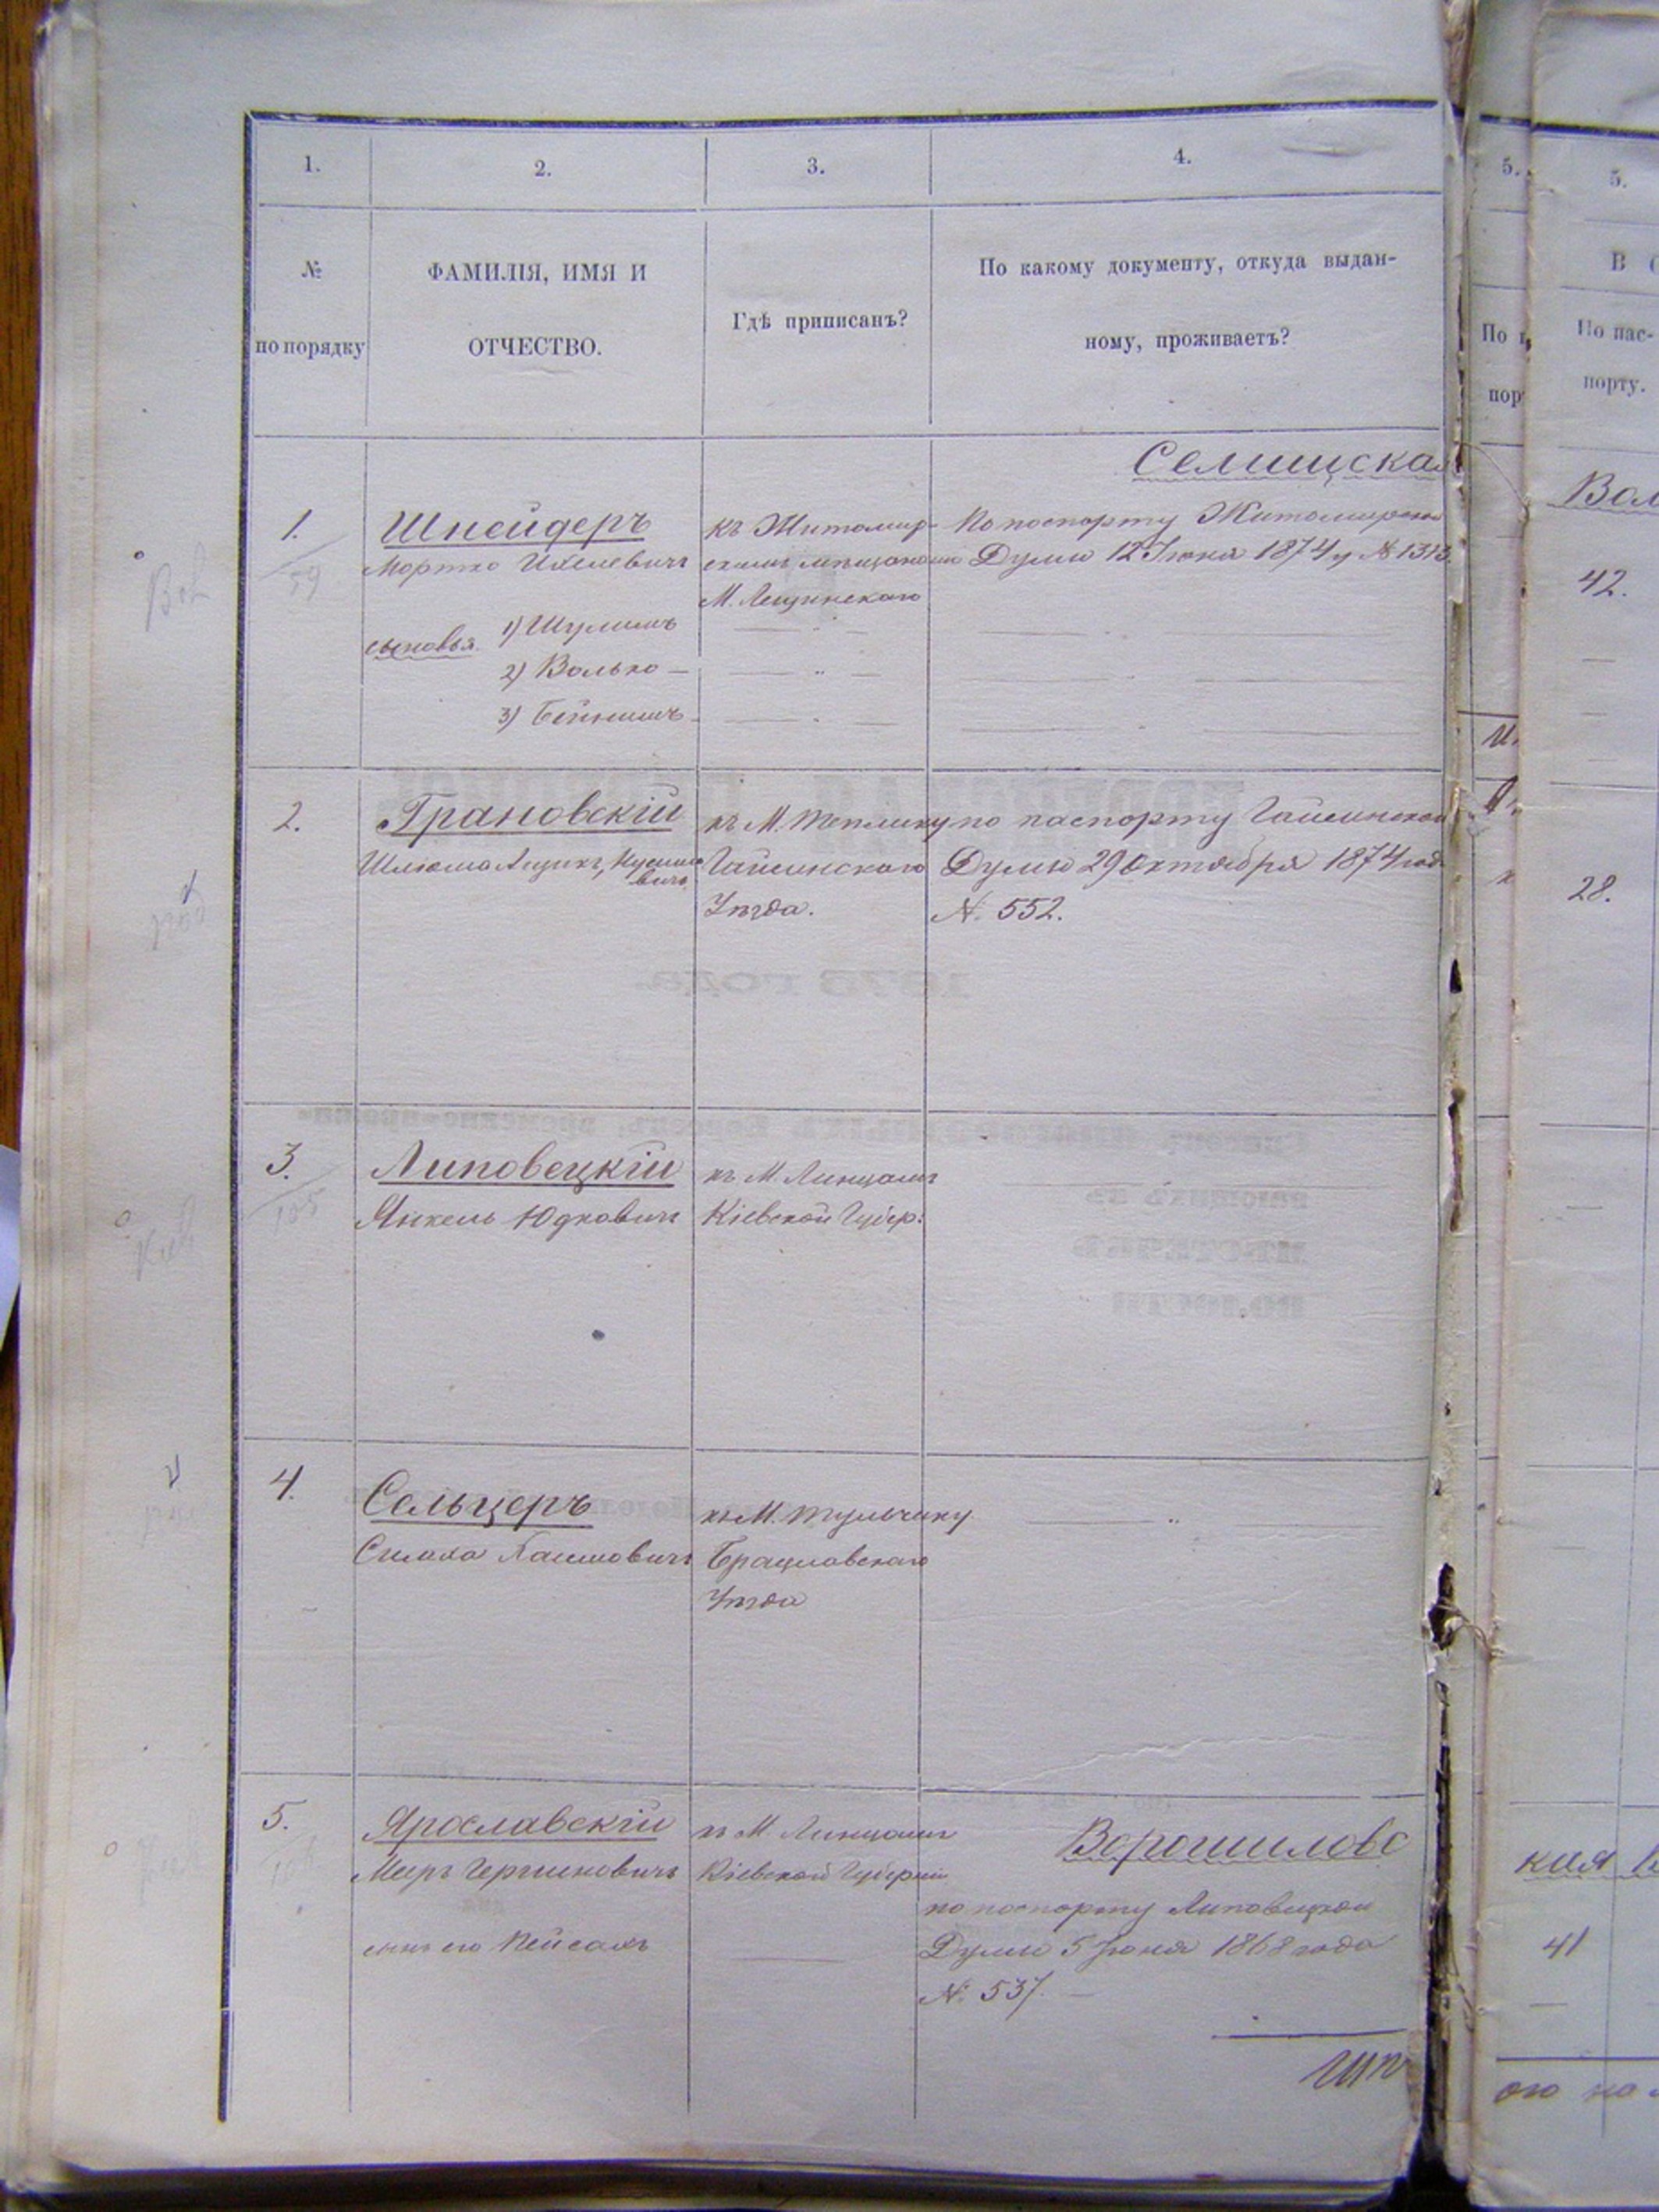 1.
2.
3.
4.
5.
5.
№
по порядку
ФАМИЛІЯ, ИМЯ И
ОТЧЕСТВО.
Гдѣ приписанъ?
По какому документу, откуда выдан-
ному, проживаетъ?
По пас-
порту.
Селищская
Вол
1.
59
Шнейдеръ
Мортко Ихелевичъ
сыновья.
1) Шулимъ
2) Волько —
3) Бейнишъ —
къ Житомир-
скимъ мѣщанамъ
М. Лещинскаго
По паспорту Житомирской
Думы 12 Іюня 1874 г № 1313.
42.
2.
Грановскій
Шлюома Ицикъ,
къ М. Теплику
Гайсинскаго
Уѣзда.
по паспорту Гайсинской
Думы 29 Октября 1874 год
№ 552.
28.
3.
105
Липовецкій
Янкель Юдковичъ
къ М. Линцамъ
Кіевской Губер:
4.
Сельцеръ
Симха Хаимовичъ
къ М. Тульчину
Брацлавскаго
Уѣзда
5.
Ярославскій
Меиръ Гершковичъ
сынъ его Пейсахъ
къ М. Линцамъ
Кіевской Губерніи
Ворошиловс
кая В
по паспорту Липовецкой
Думы 5 Іюня 1868 года
№ 537. —
41
Ит
ого